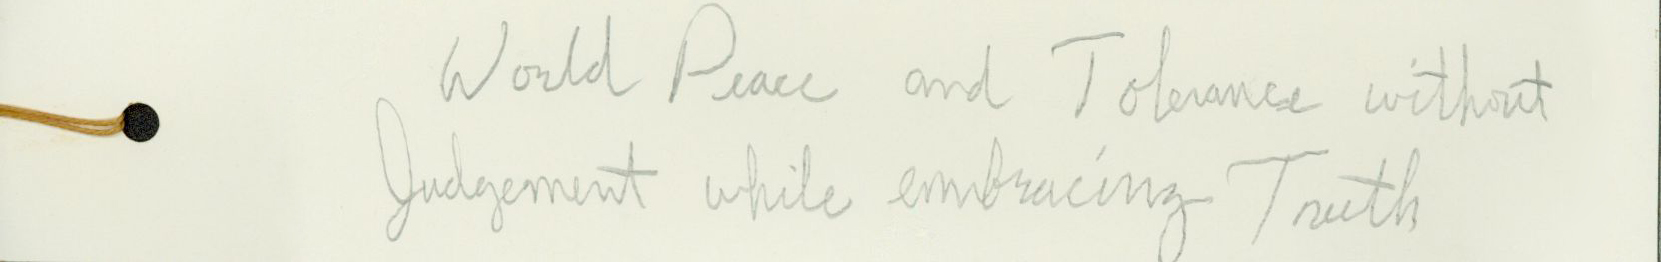 World Peace and Tolerance without
Judgement while embracing Truth